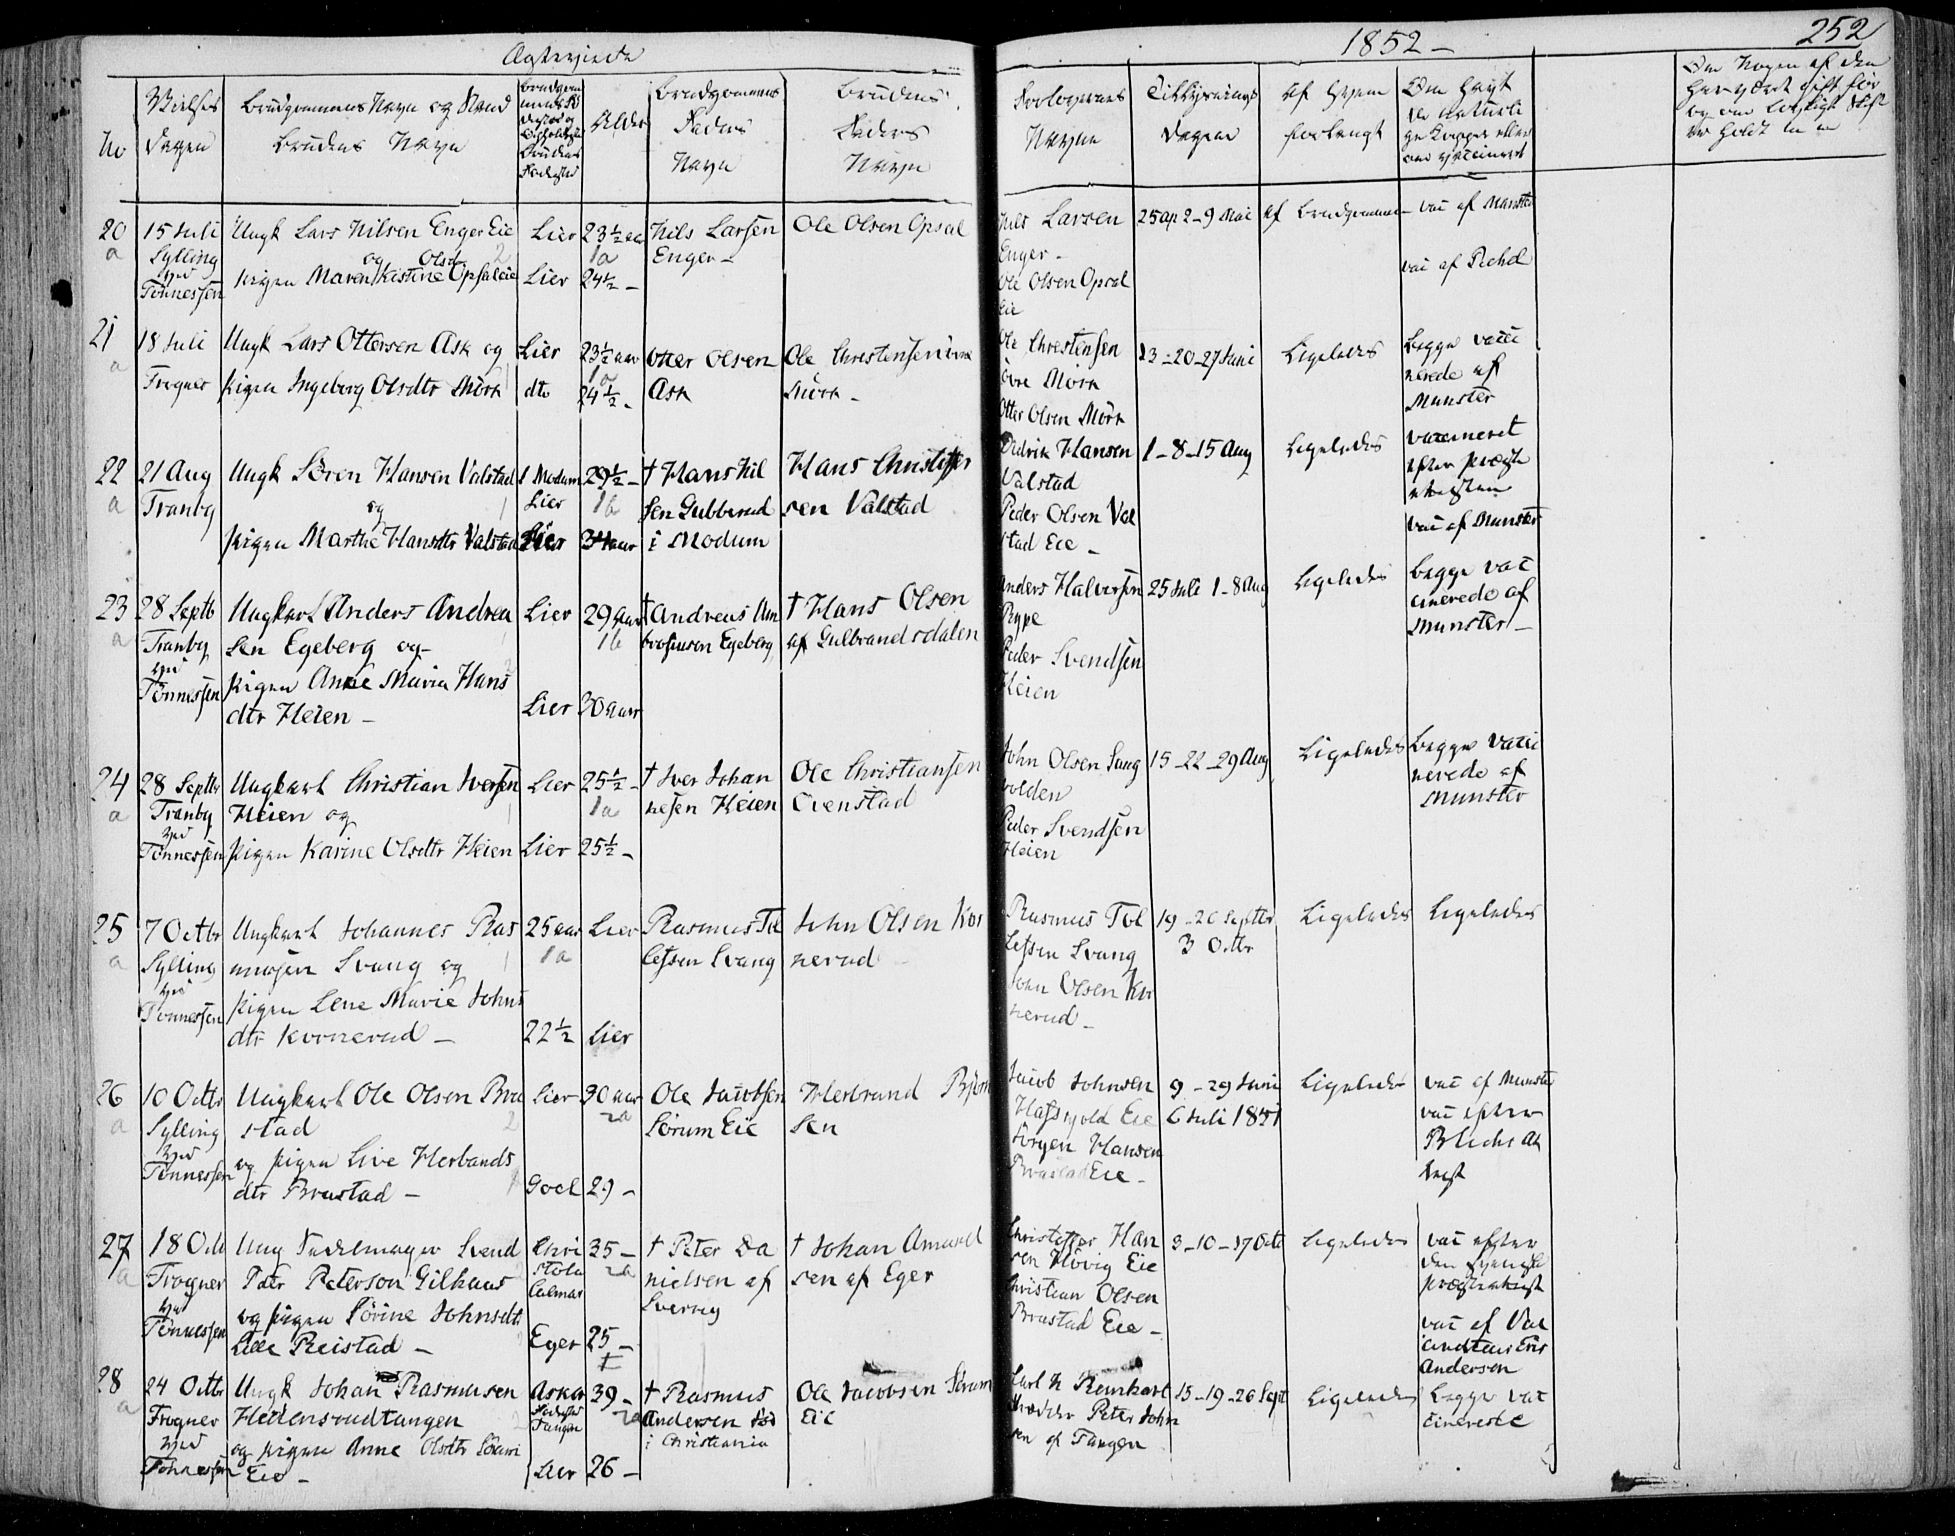 Ægteviede
1852 -
252
No
Vielses Dagen
Brudgommens Navn og Stand
Brudens Navn
Alder
Brudgommens Faders Navn
Brudens Faders Navn
Forlovernes Navne
Tillysnings Dagene
Af Hvem forlangt
20
a
15 Juli
Sylling
ved
Tönnessen
Ungk Lars Nilsen Enger Eie
og Olsd
Pigen Maren Kistine Opsaleie
Lier
Lier
23½ aar
1a
24½ -
Nils Larsen
Enger -
Ole Olsen Opsal
Nils Larsen
Enger -
Ole Olsen Opsal
Eie
25 ap 2-9 Mai
af Brudgommen
vac af Munster
21
a
18 Juli
Frogner
Ungk Lars Ottersen Ask og
Pigen Ingeborg Olsdtr Mörk
Lier
dto
23½ aar
1a
24½ -
Otter Olsen
Ask
Ole Christensen övre
Mörk -
Ole Christensen
övre Mörk
Otter Olsen Mörk
13 - 20 - 27 Juni
Ligeledes
Begge vacci
nerede af
Munster
22
a
21 Aug
Tranby
Ungk Sören Hansen Valstad
og
Pigen Marthe Hansdtr Valstad
Modum
Lier
Lier
29½ -
1b
34 aar
† Hans Nil
sen Gubberud
i Modum
Hans Christoffer
sen Valstad
Didrik Hansen
Valstad
Peder Olsen Val
stad Eie -
1 - 8 - 15 Aug
Ligeledes
vaccineret
efter
vac af Munster
23
a
28 Septb
Tranby
ved
Tönnessen
Ungkarl Anders Andrea
sen Egeberg og -
Pigen Anne Maria Hans
dtr Heien -
Lier
Lier
29 aar
1b
30 aar
† Andreas Am
brosiusen Egeberg
† Hans Olsen
af Gulbrandsdalen
Anders Halvorsen
Rype
Peder Svendsen
Heien
25 Juli 1 - 8 Aug
Ligeledes
Begge vac
cinerede af
Munster -
24
a
28 Septbr
Tranby
ved
Tönnessen
Ungkarl Christian Iversen
Heien og
Pigen Karine Olsdtr Heien
Lier
Lier
25½ -
1a
25½ -
† Iver Johan
nesen Heien
Ole Christiansen
Ovenstad
John Olsen Lang
volden
Peder Svendsen
Heien
15 - 22 - 29 Aug
Ligeledes
Begge vacci
nerede af
Munster
25
a
7 Octbr
Sylling
ved
Tönnessen
Ungkarl Johannes Ras
musen Svang og
Pigen Lene Marie Johns
dtr Kornerud -
25 aar
1a
22½
Lier
Lier
Rasmus Tol
lefsen Svang
John Olsen Kor
nerud -
Rasmus Tol
lefsen Svang
John Olsen Kor
nerud -
19 - 26 Septbr
3 Octbr
Ligeledes
Ligeledes
26
a
10 Octbr
Sylling
ved
Tönnessen
Ungkarl Ole Olsen Bra
stad
og Pigen Live Herbands
dtr Brastad -
Lier
Goel
30 aar
2a
29 -
Ole Jacobsen
Sörum Eie
Herbrand Björn
sen
Jacob Johnsen
Eie
Jörgen Hansen
Brastad Eie -
9 - 29 Juni
6 Juli 1851
Ligeledes
vac af Munster
vac efter
Blichs At
test
27
a
18 Octb
Frogner
ved
Tönnessen
Ung Sadelmager Svend
Petr Peterson Gilhaus
og Pigen Sörine Johnsdtr
Lille Reistad -
Chri
stola
Calmar
Eger
35 -
2a
25 -
† Peter Da
nielsen af
Sverrig
† Johan Amund
sen af Eger
Christoffer Han
sen Hövig Eie
Christian Olsen
Brastad Eie -
3 - 10 - 17 Octb
Ligeledes
vac efter
den svenske
Præsteattest
vac af Vac
Andersen
28
a
24 Octbr
Frogner
ved
Tönnessen
Ungk Johan Rasmusen
Hedensrudtangen
og Pigen Anne Olsdtr Sörum
Eie -
Asker
Tangen
Lier
39 -
2a
26 -
† Rasmus
Andersen
i Christiania
Ole Jacobsen Sörum
Eie
Carl H Reinhart
Peter John
sen af Tangen
15 - 19 - 26 Sept
Ligeledes
Begge vac
cinerede